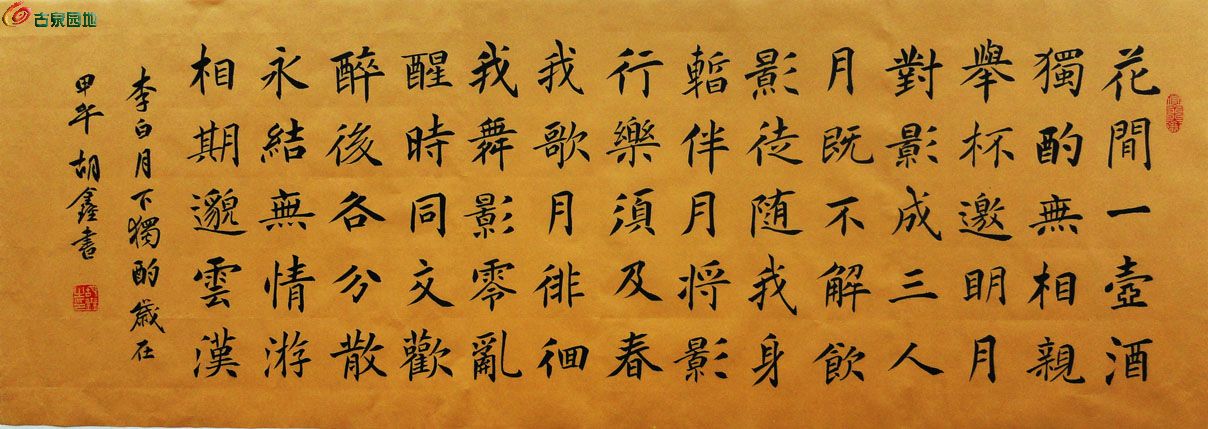 古泉园地
花間一壺酒
獨酌無相親
舉杯邀明月
對影成三人
月既不解飲
影徒随我身
暫伴月将影
行樂須及春
我歌月徘徊
我舞影零亂
醒時同交歡
醉後各分散
永結無情游
相期邈雲漢
李白月下獨酌歲在
甲午胡鑫書